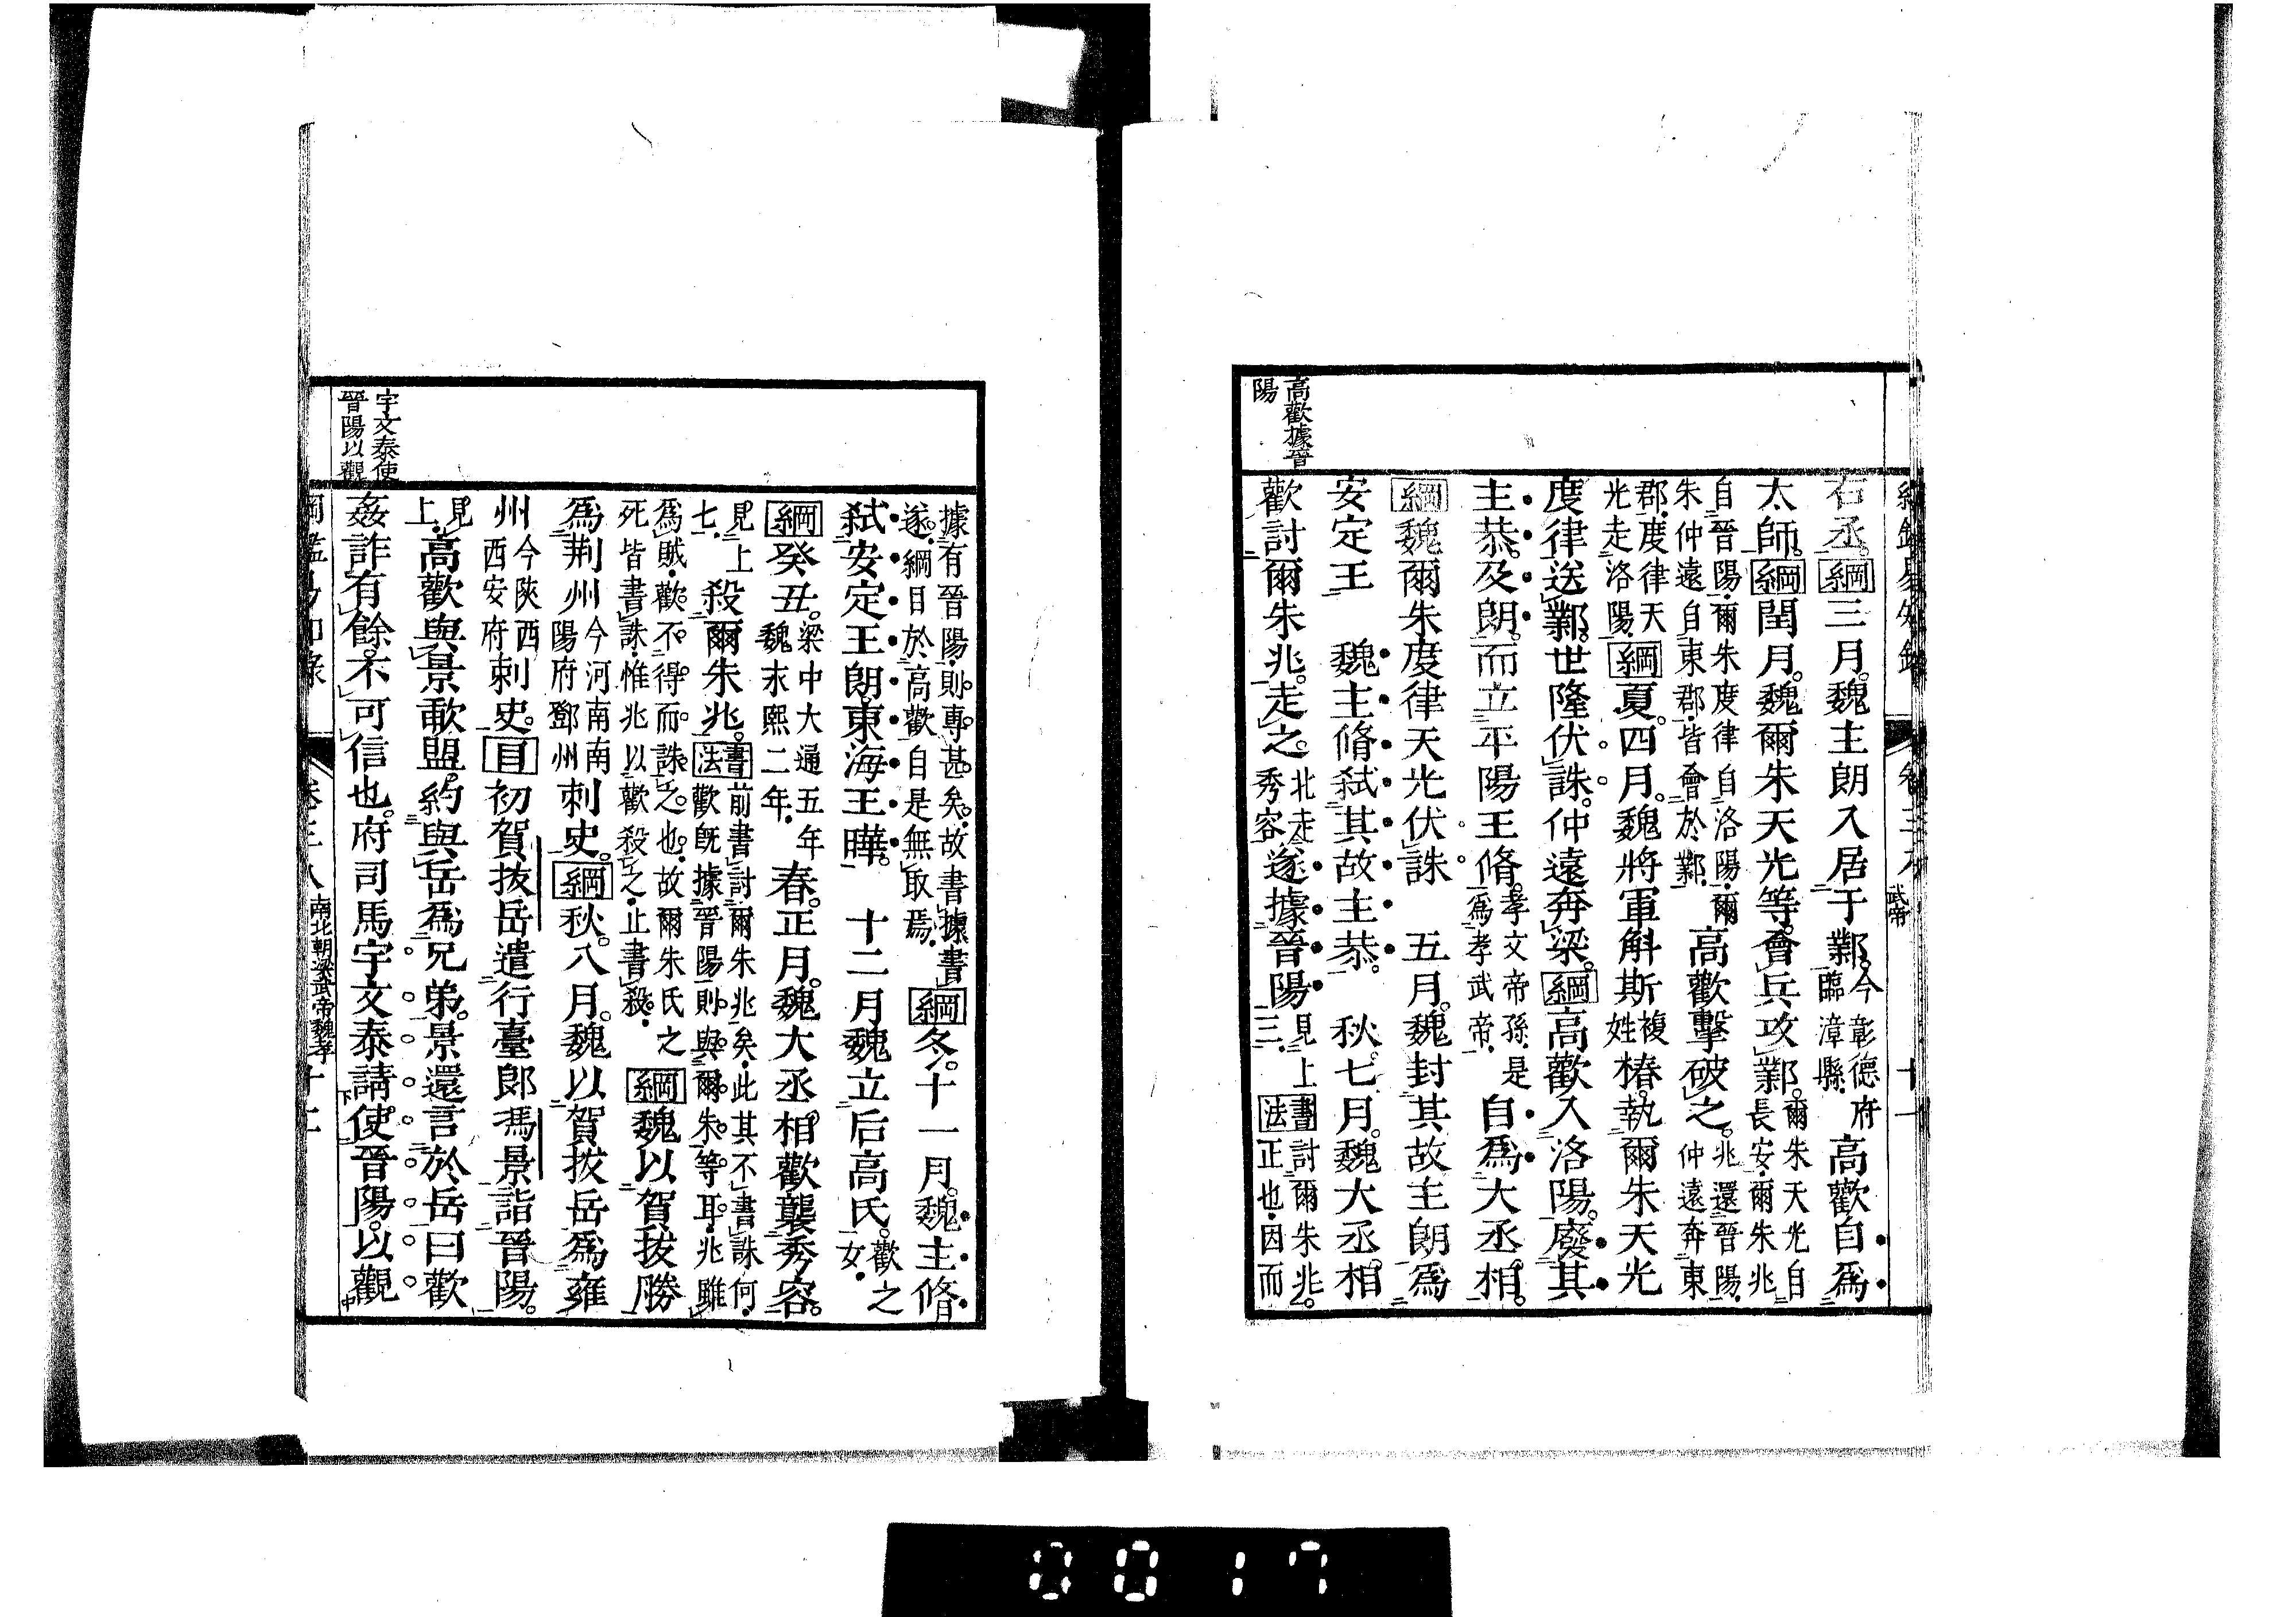 高歡據晉
陽
右丞。綱三月。魏主朗入居于鄴。今彰德府臨漳縣。高歡自爲
太師。綱閏月。魏爾朱天光等。會兵攻鄴。爾朱天光自長安。爾朱兆
自晉陽。爾朱度律自洛陽。爾朱仲遠自東郡。皆會於鄴。高歡擊破之。兆還晉陽。仲遠奔東
郡。度律天光走洛陽。綱夏。四月。魏將軍斛斯複姓椿。執爾朱天光
度律送鄴。世隆伏誅。仲遠奔梁。綱高歡入洛陽。廢其
主恭。及朗。而立平陽王脩。孝文帝孫。是爲孝武帝。自爲大丞相。
綱魏爾朱度律天光伏誅。五月。魏封其故主朗爲
安定王 魏主脩弒其故主恭。秋。七月。魏大丞相
歡討爾朱兆。走之。北走秀容。遂據晉陽。見上三。書法討爾朱兆。正也。因而
武帝
十一
宇文泰使
晉陽以觀
據有晉陽。則專甚矣。故書據。書遂。綱目於高歡。自是無取焉。綱冬。十一月。魏主脩
弒安定王朗。東海王曄。 十二月魏立后高氏。歡之女。
綱癸丑。梁中大通五年魏永熙二年。春。正月。魏大丞相歡襲秀容。
見上七。殺爾朱兆。書法前書討爾朱兆矣。此其不書誅何。歡旣據晉陽。則與爾朱等耳。兆雖
爲賊。歡不得而誅之也。故爾朱氏之死皆書誅。惟兆以歡殺之。止書殺。綱魏以賀拔勝
爲荆州今河南南陽府鄧州刺史。綱秋。八月。魏以賀拔岳爲雍
州今陝西西安府刺史。目初賀拔岳遣行臺郎馮景詣晉陽。
見上。高歡與景歃盟。約與岳爲兄弟。景還言於岳曰歡
姦詐有餘。不可信也。府司馬宇文泰請使晉陽。以觀
南北朝梁武帝魏孝
0017